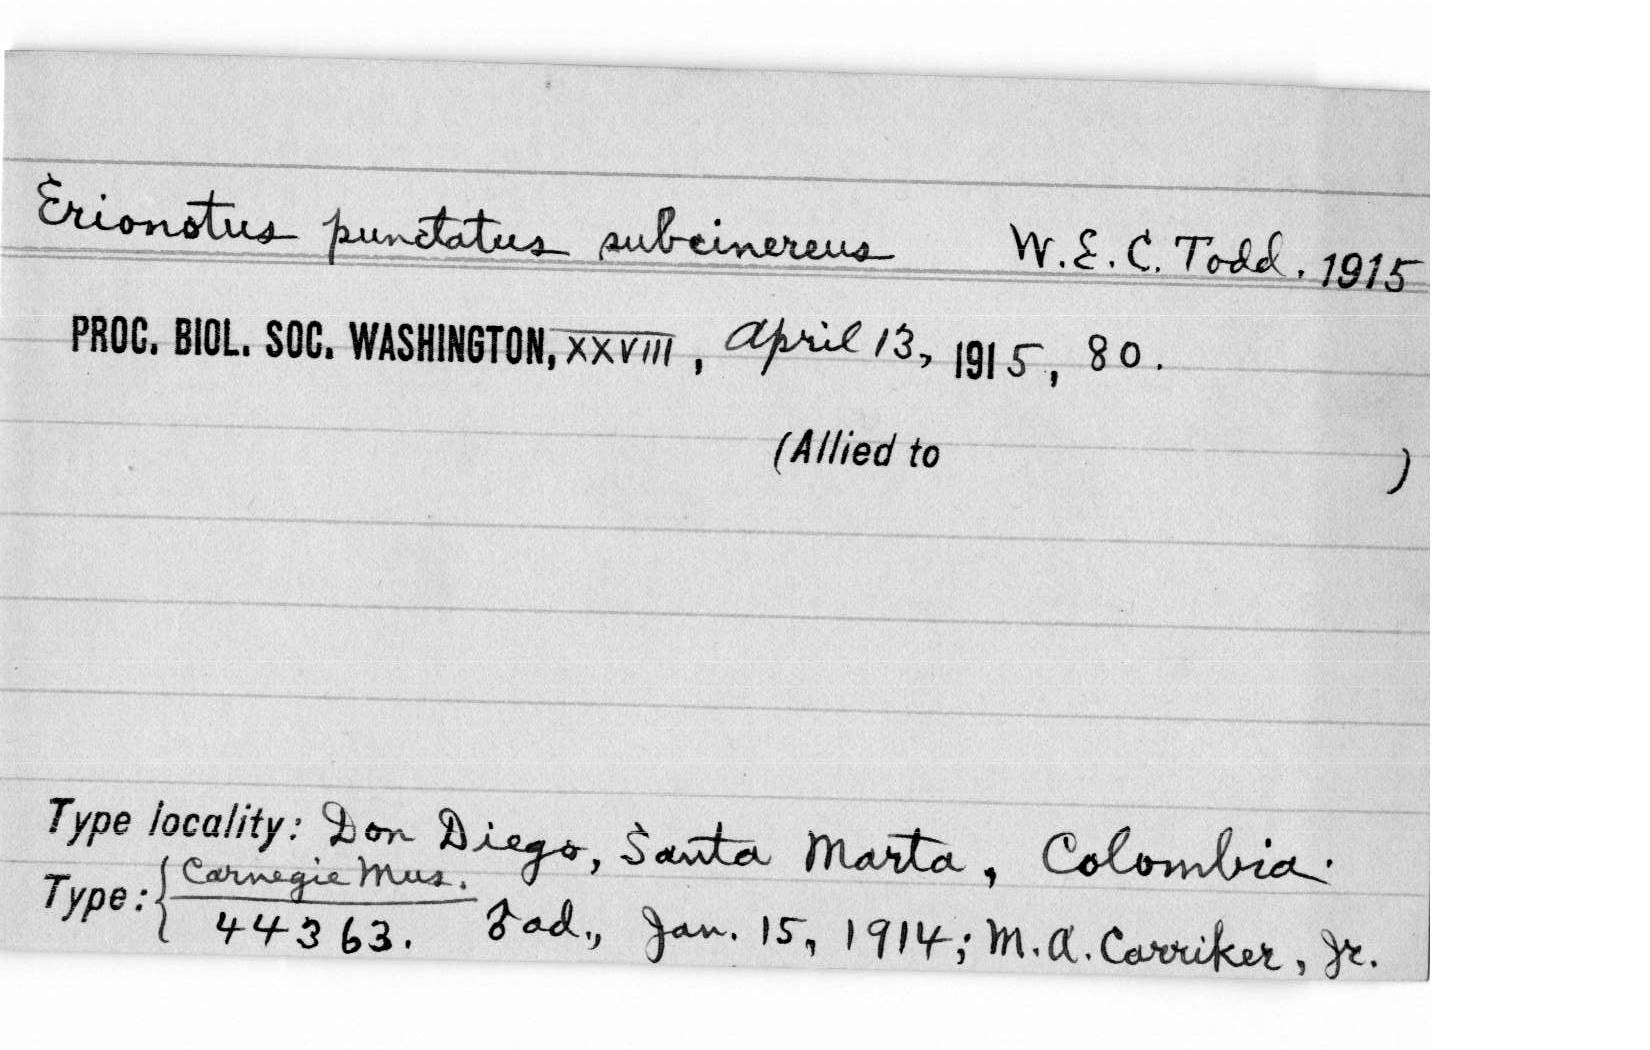 Erionotus punctatus subcinereus W.E.C. Todd. 1915
PROC. BIOL. SOC. WASHINGTON, XXVIII, April 13, 1915, 80.
(Allied to )
Type locality: Don Diego, Santa Marta, Colombia.
Type: { Carnegie Mus.
44363. ad., Jan. 15, 1914; M.A. Carriker, Jr.